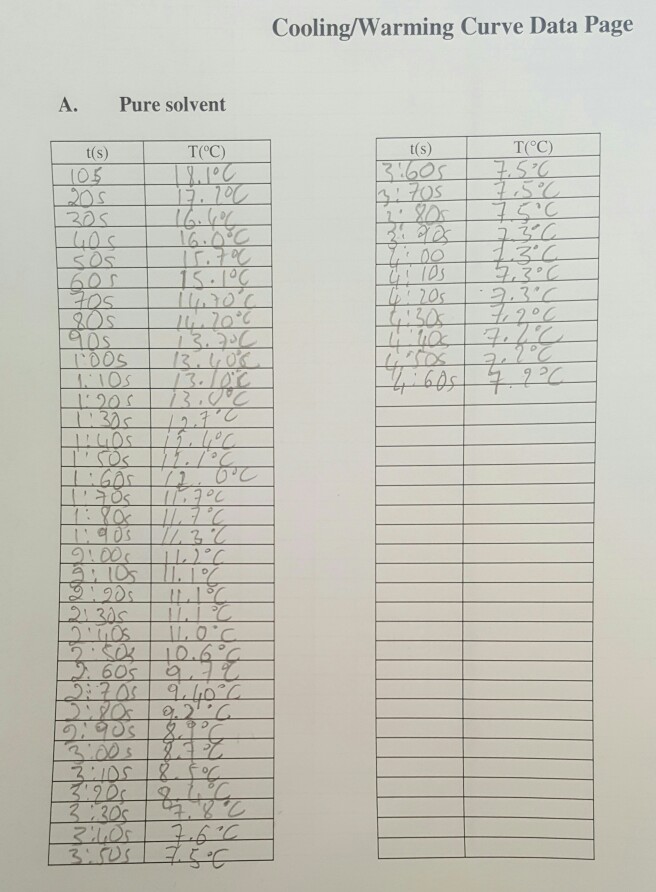 Cooling/Warming Curve Data Page
A. Pure solvent
t(s) T(°C)
10s 18.1°C
20s 17.2°C
30s 16.4°C
40s 16.0°C
50s 15.7°C
60s 15.1°C
70s 14.70°C
80s 14.20°C
90s 13.7°C
1:00s 13.40°C
1:10s 13.10°C
1:20s 13.0°C
1:30s 12.7°C
1:40s 12.4°C
1:50s 12.1°C
1:60s 12.0°C
1:70s 11.7°C
1:80s 11.7°C
1:90s 11.3°C
2:00s 11.2°C
2:10s 11.1°C
2:20s 11.1°C
2:30s 11.1°C
2:40s 11.0°C
2:50s 10.6°C
2:60s 9.7°C
2:70s 9.40°C
2:80s 9.2°C
2:90s 8.9°C
3:00s 8.7°C
3:10s 8.5°C
3:20s 8.4°C
3:30s 7.8°C
3:40s 7.6°C
3:50s 7.5°C
t(s) T(°C)
3:60s 7.5°C
3:70s 7.5°C
3:80s 7.5°C
3:90s 7.3°C
4:00 7.3°C
4:10s 7.3°C
4:20s 7.3°C
4:30s 7.2°C
4:40s 7.2°C
4:50s 7.2°C
4:60s 7.2°C